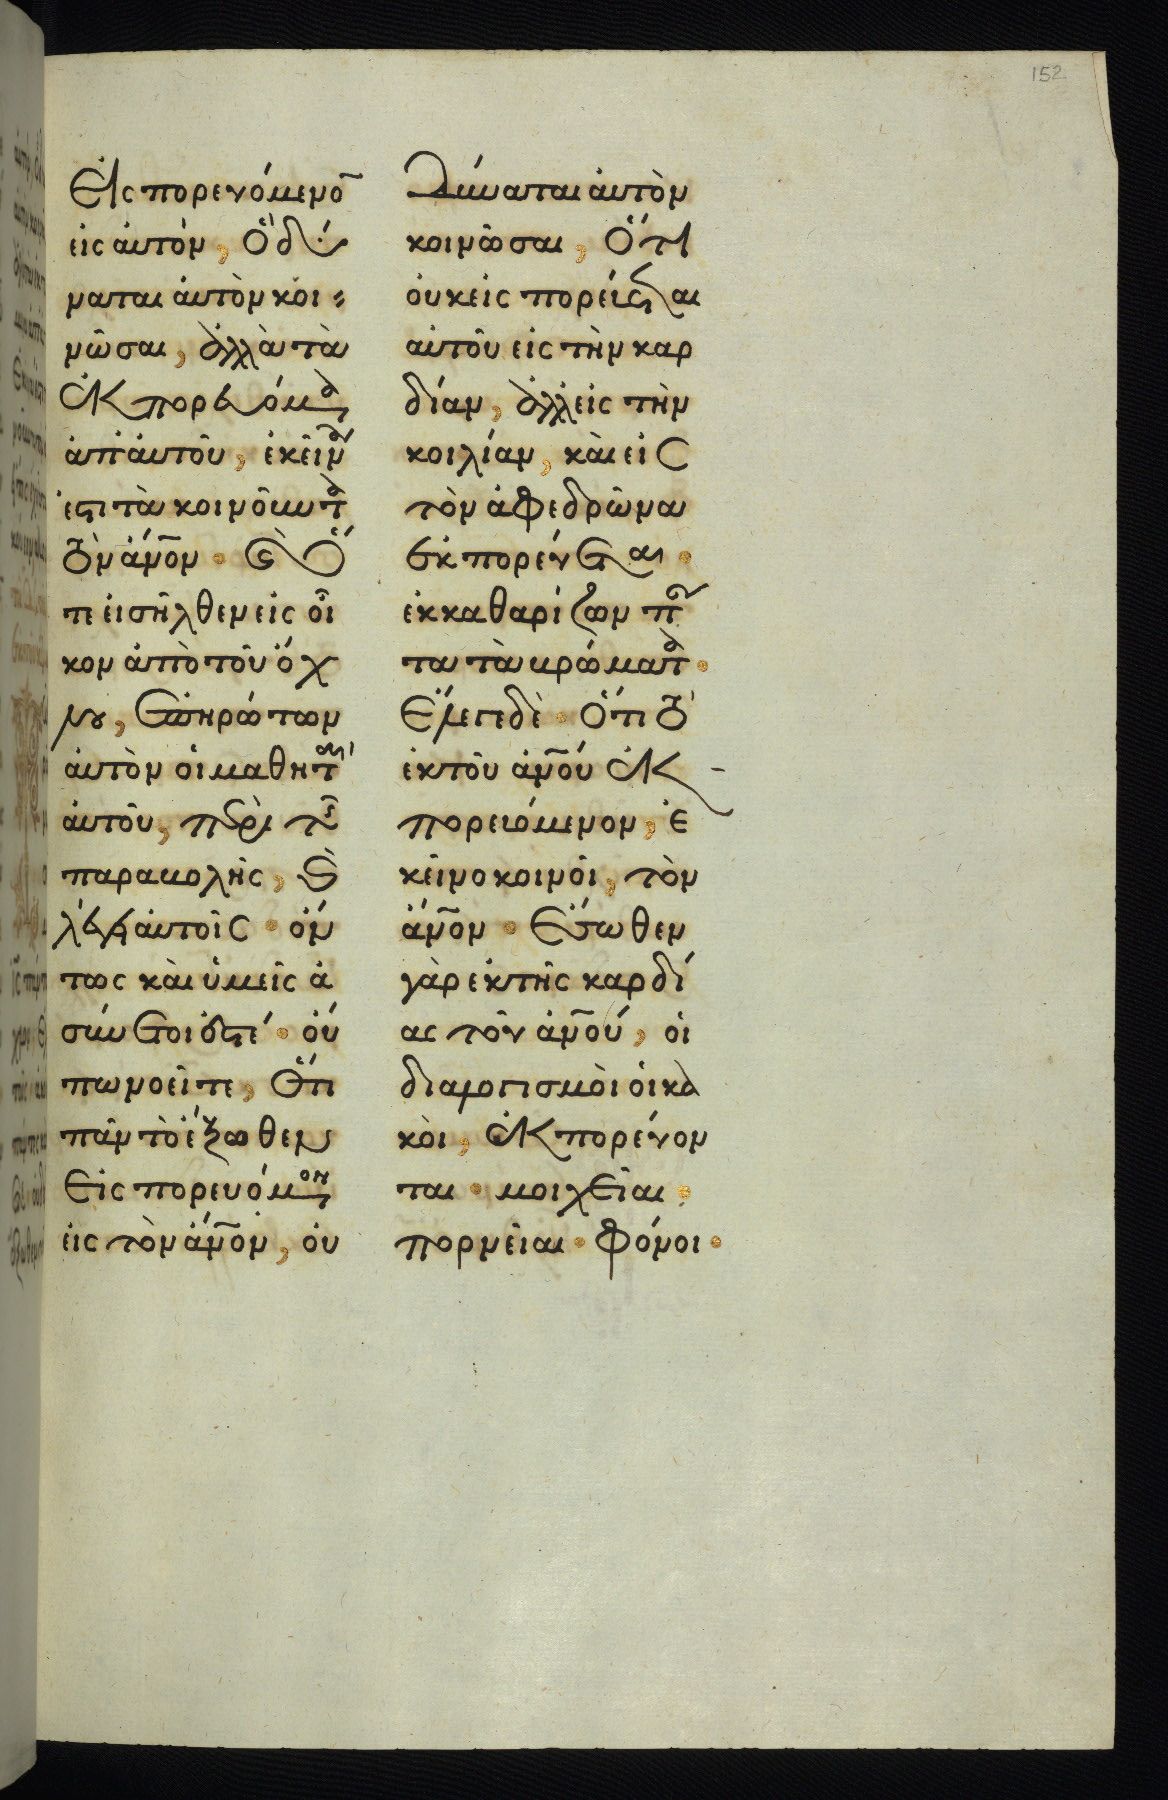 152
Εἰς πορευόμενο̅
εἰς αὐτόν, Ὃ δύ
ναται αὐτὸν κοι
νῶσαι, ἀλλὰ τὰ
ἐκπορευόμενα
ἀπ' αὐτοῦ, ἐκεῖνά
ἐστι τὰ κοινοῦντα
τὸν ἄν̅ον · Καὶ ὅ
τε εἰσῆλθεν εἰς οἶ
κον ἀπὸ τοῦ ὄχ
λου, ἐπηρώτων
αὐτὸν οἱ μαθηταὶ
αὐτοῦ, περὶ τῆς
παραβολῆς, καὶ
λέγει αὐτοῖς · οὕ
τως καὶ ὑμεῖς ἀ
σύνετοί ἐστέ · οὔ
πω νοεῖτε, Ὅτι
πᾶν τὸ ἔξωθεν
Εἰς πορευόμενον
εἰς τὸν ἄν̅ον, οὐ
Δύναται αὐτὸν
κοινῶσαι, Ὅτι
οὐκ εἰσπορεύεται
αὐτοῦ εἰς τὴν καρ
δίαν, ἀλλ' εἰς τὴν
κοιλίαν, καὶ εἰς
τὸν ἀφεδρῶνα
ἐκπορεύεται ·
ἐκκαθαρίζων πάν
τα τὰ βρώματα ·
Ἔλεγε δὲ · Ὅτι τὸ
ἐκ τοῦ ἀν̅ου ἐκ
πορευόμενον, ἐ
κεῖνο κοινοῖ, τὸν
ἄν̅ον · Ἔσωθεν
γὰρ ἐκ τῆς καρδί
ας τοῦ ἀν̅ου, οἱ
διαλογισμοὶ οἱ κα
κοὶ, Ἐκπορεύον
ται · μοιχεῖαι ·
πορνεῖαι · Φόνοι ·